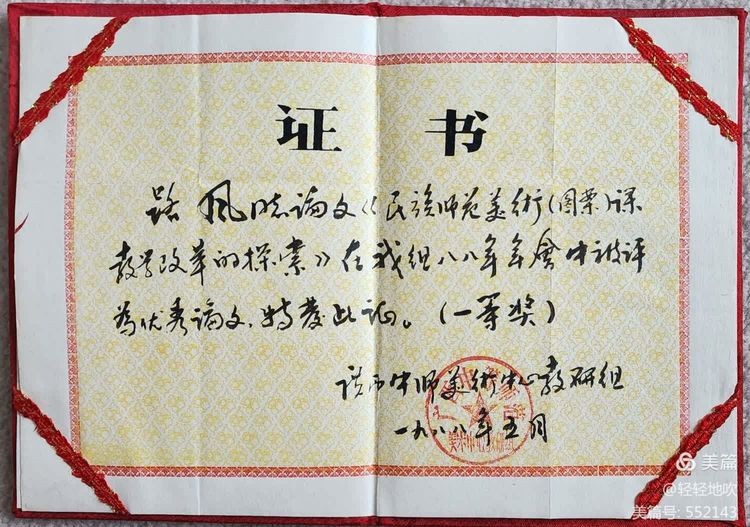 证书
路风晓论文《民族师范美術(图案)课
教学改革的探索》在我组八八年年會中被评
为优秀论文,特发此证。(一等奖)
中师美術中心教研组
一九八八年五月
美篇
@轻轻地吹
美篇号: 552143